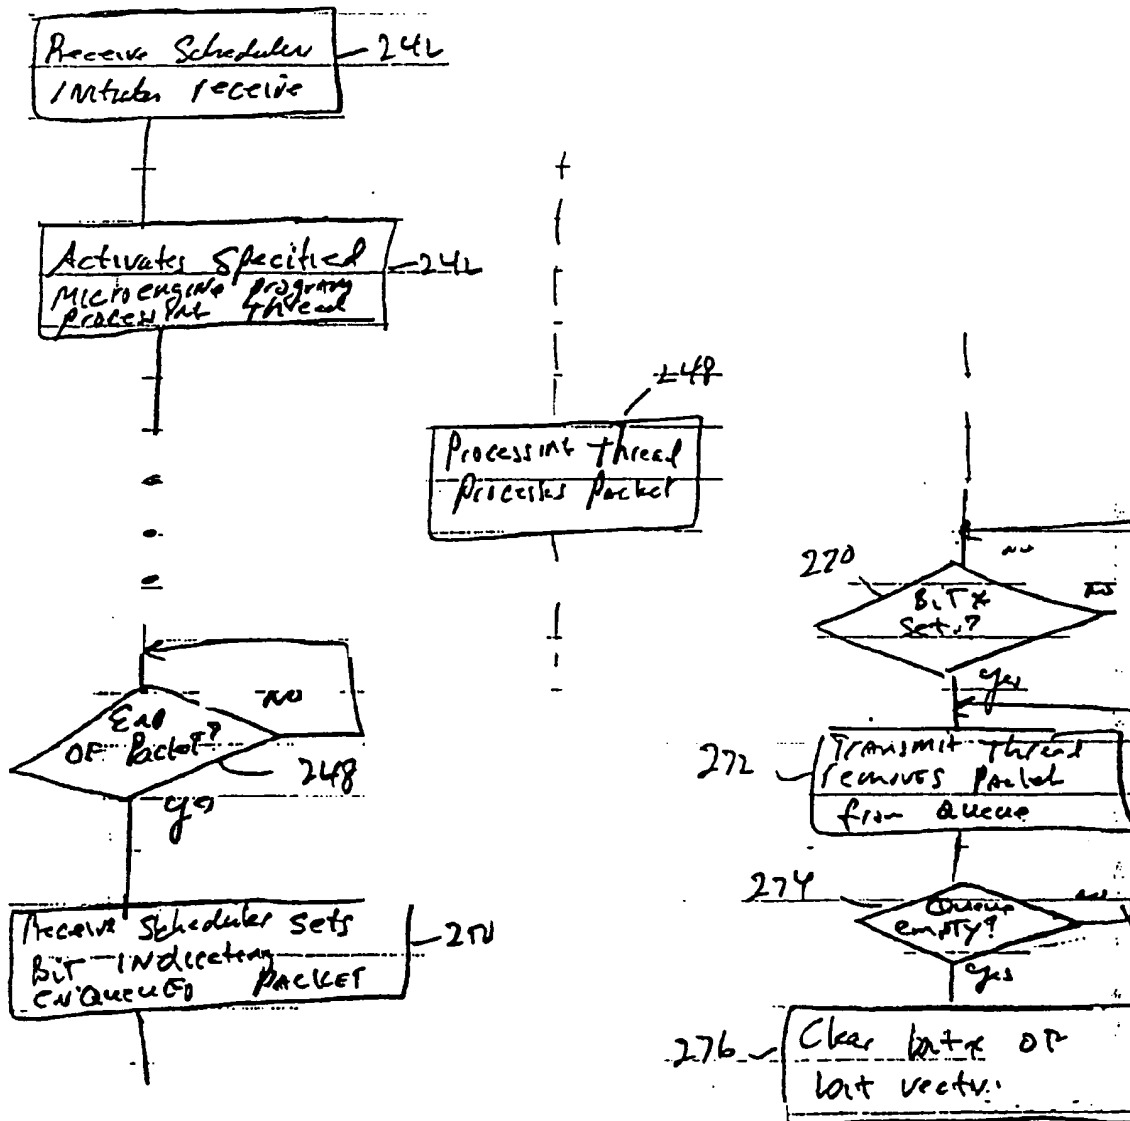 Receive Scheduler
Initiates receive
242
Activates Specified
Microengine program
processing thread
242
248
Processing thread
Processes Packet
End
OF Packet?
NO
248
yes
Receive Scheduler sets
BIT Indicating
ENQUEUED PACKET
250
270
BIT x
set?
no
no
yes
272
Transmit Thread
removes Packet
from Queue
274
Queue
empty?
no
yes
276
Clear bit x OF
bit vector